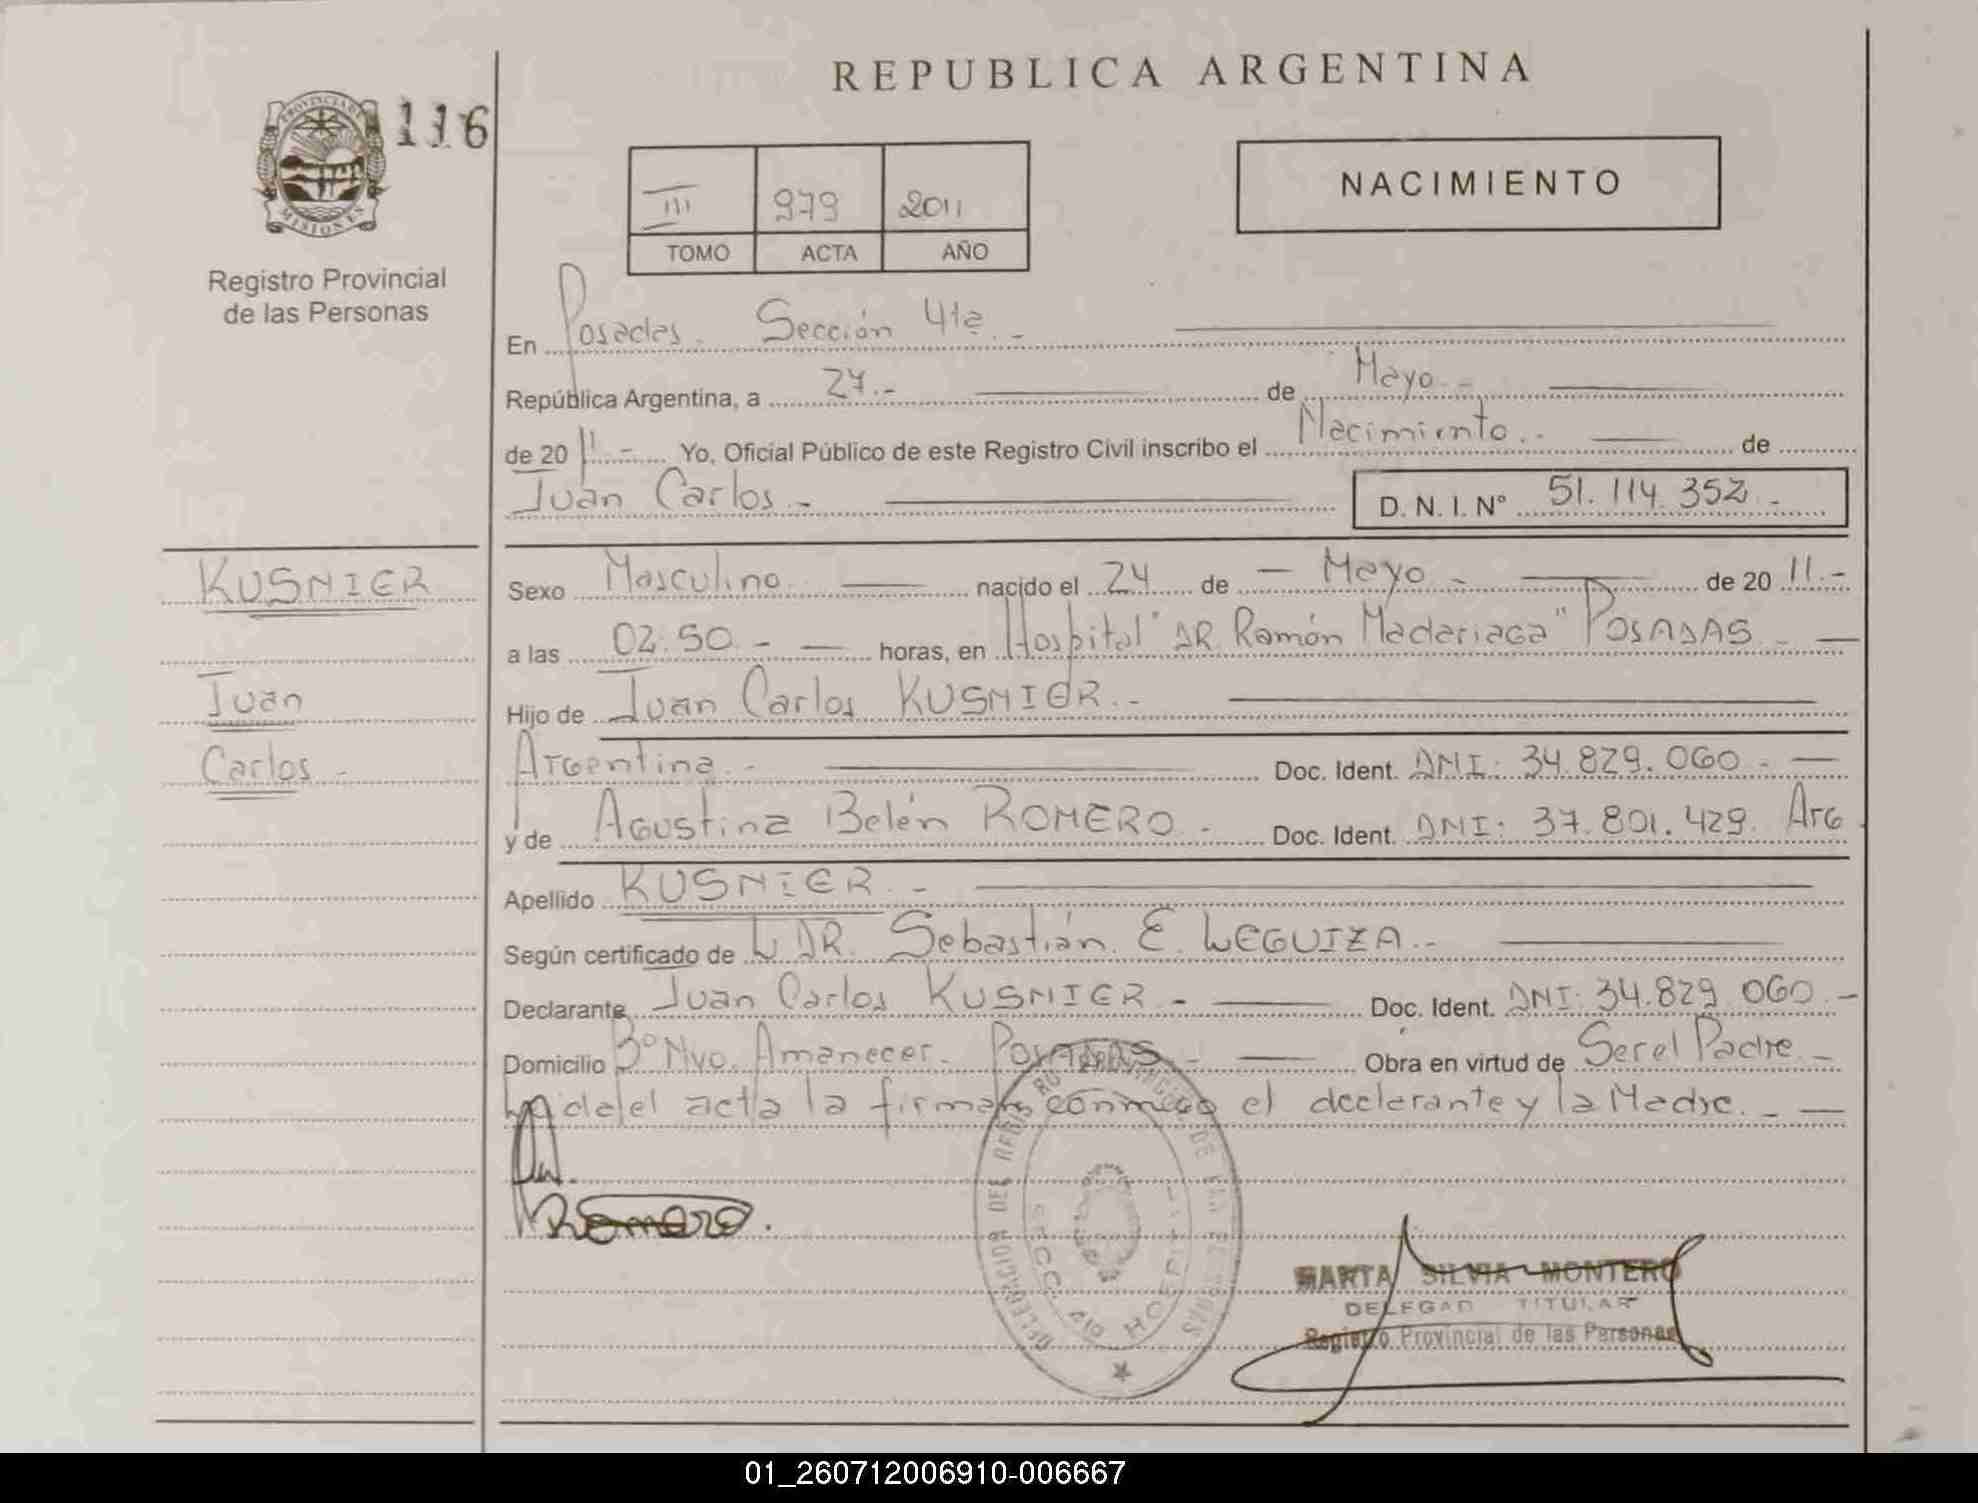 REPUBLICA ARGENTINA
PROVINCIA DE
MISIONES
116
Registro Provincial
de las Personas
III 979 2011
TOMO ACTA AÑO
NACIMIENTO
En Posadas. Sección 4ta.-
República Argentina, a 27.- de Mayo.-
de 2011.- Yo, Oficial Público de este Registro Civil inscribo el Nacimiento.- de
Juan Carlos.- D. N. I. N° 51.114.352.-
KUSNIER
Juan
Carlos.-
Sexo Masculino nacido el 24 de - Mayo.- de 2011.-
a las 02:50.- horas, en Hospital "DR. Ramón Madariaga" POSADAS.-
Hijo de Juan Carlos KUSNIER.-
Argentina.- Doc. Ident. DNI: 34.829.060.-
y de Agustina Belén ROMERO.- Doc. Ident. DNI: 37.801.429. Arg
Apellido KUSNIER.-
Según certificado de DR. Sebastián E. LEGUIZA.-
Declarante Juan Carlos KUSNIER.- Doc. Ident. DNI: 34.829.060.-
Domicilio B° Nvo. Amanecer. POSADAS.- Obra en virtud de Ser el Padre.-
Leida el acta la firman conmigo el declarante y la Madre.-
Romero.
DELEGACION DEL REGISTRO PROVINCIAL DE LAS PERSONAS
SECC. 4ta HOSPITAL
MARTA SILVIA MONTERO
DELEGAD TITULAR
Registro Provincial de las Personas
01_260712006910-006667